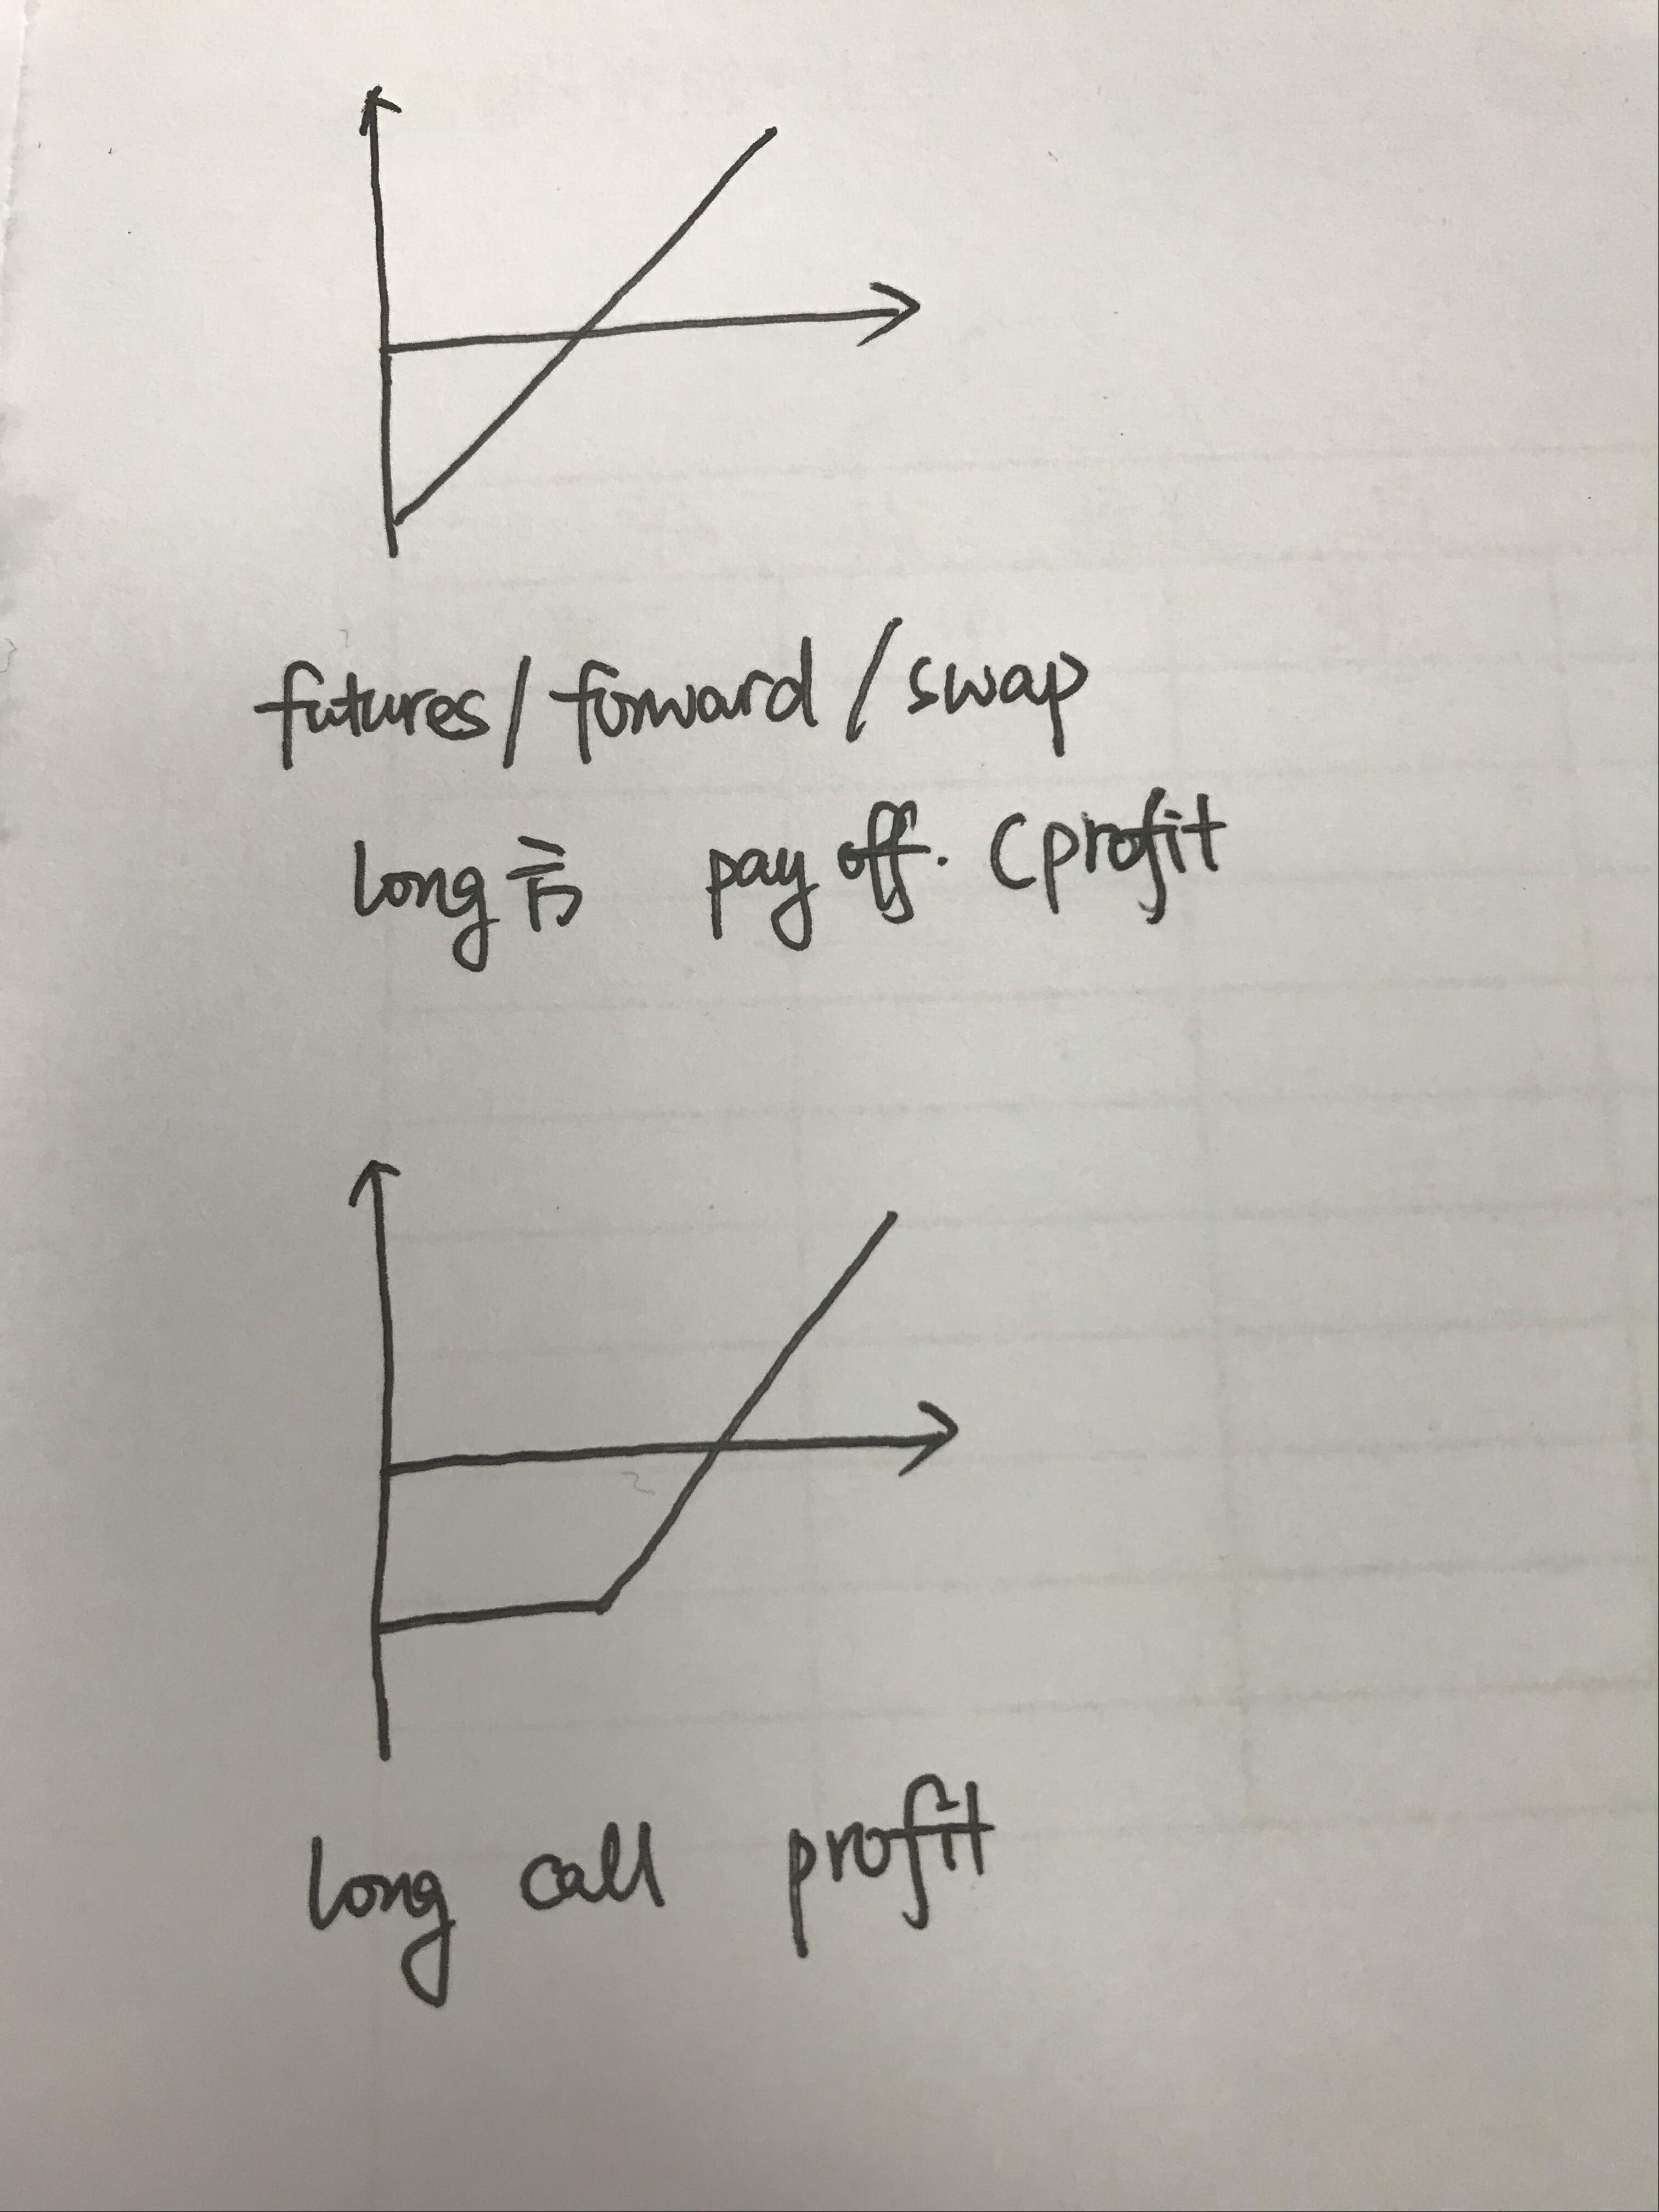 futures/forward/swap
long 方 pay off. (profit
long call profit